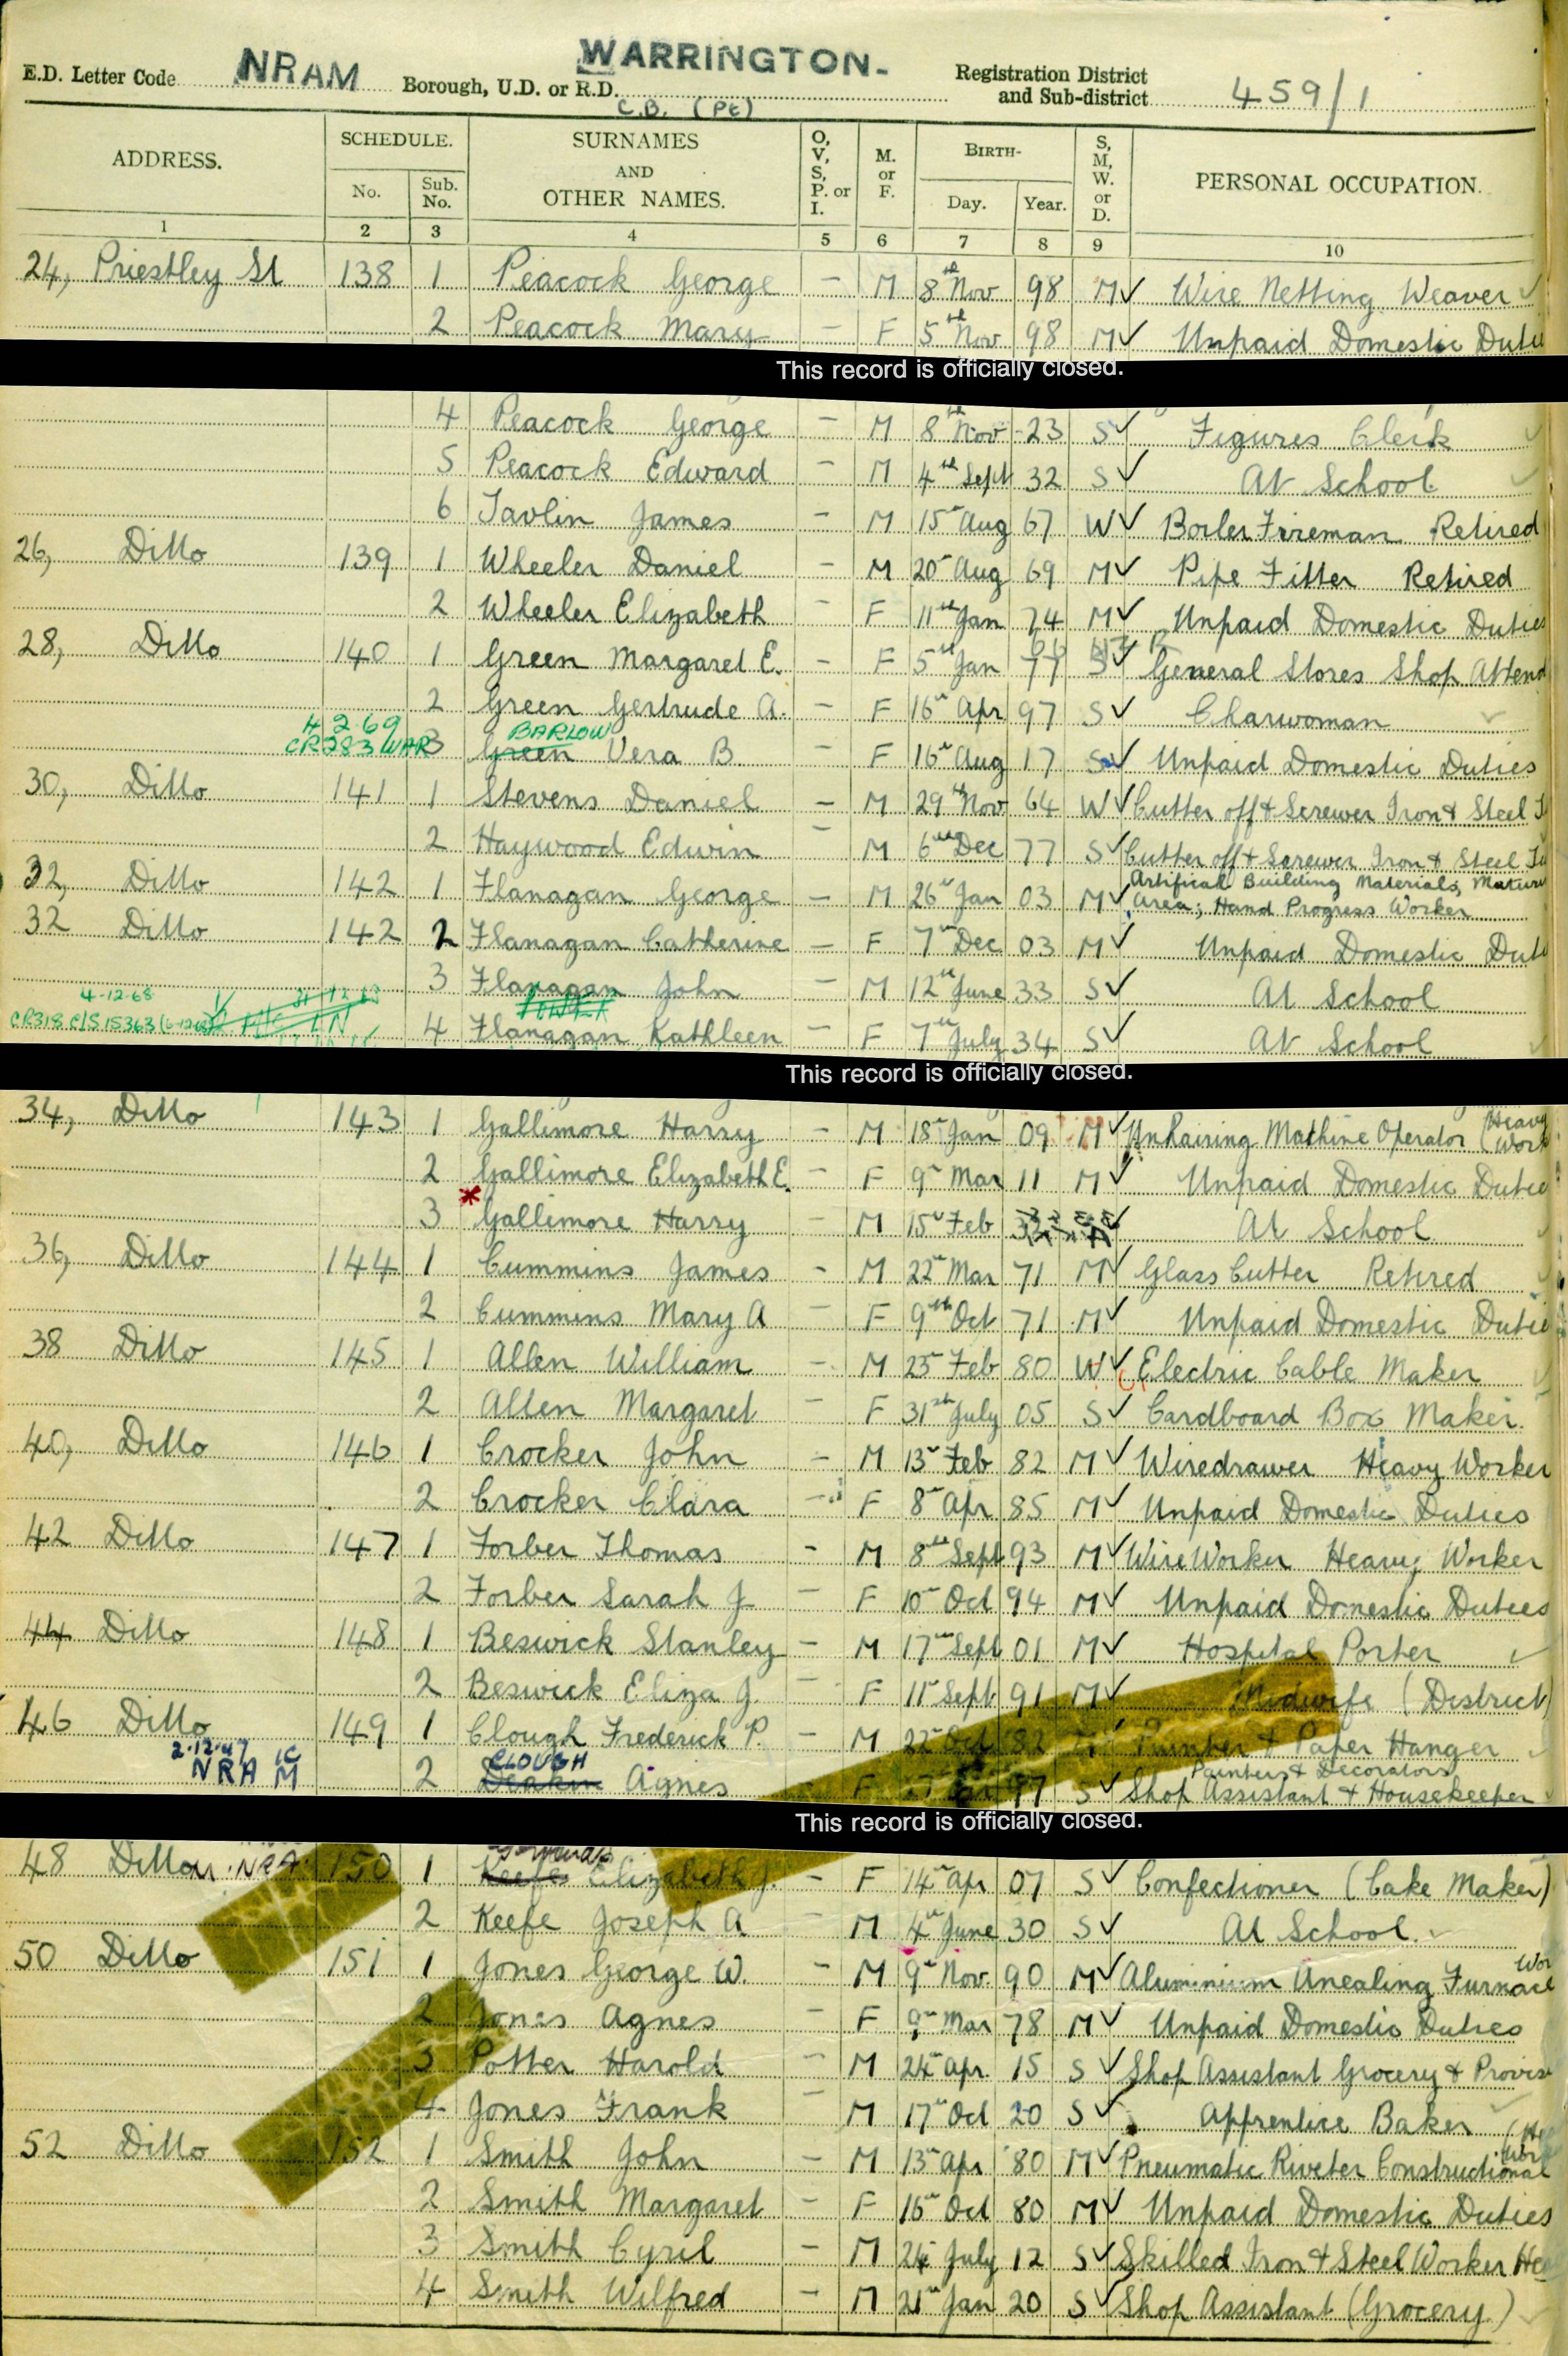 E.D. Letter Code NRAM Borough, U.D. or R.D. WARRINGTON- C.B. (Pt) Registration District and Sub-district 459/1
ADDRESS. SCHEDULE. No. Sub. No. SURNAMES AND OTHER NAMES. O, V, S, P. or I. M. or F. BIRTH- Day. Year. S, M, W. or D. PERSONAL OCCUPATION.
1 2 3 4 5 6 7 8 9 10
24, Priestley St 138 1 Peacock George - M 8th Nov 98 M Wire Netting Weaver
2 Peacock Mary - F 5th Nov 98 M Unpaid Domestic Dutie
This record is officially closed.
4 Peacock George - M 8th Nov 23 S Figures Clerk
5 Peacock Edward - M 4th Sept 32 S At School
6 Tavlin James - M 15th Aug 67 W Boiler Fireman Retired
26, Ditto 139 1 Wheeler Daniel - M 20th Aug 69 M Pipe Fitter Retired
2 Wheeler Elizabeth - F 11th Jan 74 M Unpaid Domestic Duties
28, Ditto 140 1 Green Margaret E. - F 5th Jan 77 S General Stores Shop Attend
2 Green Gertrude A. - F 16th Apr 97 S Charwoman
4 2 69 BARLOW
CR283 WAR 3 Green Vera B - F 16th Aug 17 S Unpaid Domestic Duties
30, Ditto 141 1 Stevens Daniel - M 29th Nov 64 W Cutter off & Screwer Iron & Steel T
2 Haywood Edwin - M 6th Dec 77 S Cutter off & Screwer Iron & Steel Tu
32, Ditto 142 1 Flanagan George - M 26th Jan 03 M Artifical Building Materials, Mature
Area; Hand Progress Worker
32 Ditto 142 2 Flanagan Catherine - F 7th Dec 03 M Unpaid Domestic Duti
3 Flanagan John - M 12th June 33 S At School
4-12-68
CR318 C/S 15363 4 Flanagan Kathleen - F 7th July 34 S At School
This record is officially closed.
34, Ditto 143 1 Gallimore Harry - M 18th Jan 09 M Unhairing Machine Operator (Heavy Work
2 Gallimore Elizabeth E. - F 9th Mar 11 M Unpaid Domestic Dutie
3 Gallimore Harry - M 15th Feb At School
36, Ditto 144 1 Cummins James - M 22nd Mar 71 M Glass Cutter Retired
2 Cummins Mary A - F 9th Oct 71 M Unpaid Domestic Dutie
38 Ditto 145 1 Allen William - M 25th Feb 80 W Electric Cable Maker
2 Allen Margaret - F 31st July 05 S Cardboard Box Maker.
40, Ditto 146 1 Crocker John - M 13th Feb 82 M Wiredrawer Heavy Worker
2 Crocker Clara - F 8th Apr 85 M Unpaid Domestic Duties
42 Ditto 147 1 Forber Thomas - M 8th Sept 93 M Wire Worker Heavy Worker
2 Forber Sarah J - F 10th Oct 94 M Unpaid Domestic Duties
44 Ditto 148 1 Beswick Stanley - M 17th Sept 01 M Hospital Porter
2 Beswick Eliza J. - F 11th Sept 91 M Midwife (District)
46 Ditto 149 1 Clough Frederick P. - M 22nd Oct 82 Painter & Paper Hanger
2.12.47 CLOUGH Painters & Decorators
NRA M 2 Deakin Agnes F 97 S Shop Assistant & Housekeeper
This record is officially closed.
48 Ditto NRA 150 1 Keefe Elizabeth J. - F 14th Apr 07 S Confectioner (Cake Maker)
2 Keefe Joseph A - M 4th June 30 S At School.
50 Ditto 151 1 Jones George W. - M 9th Nov. 90 M Aluminium Anealing Furnace Wor
2 Jones Agnes - F 9th Mar 78 M Unpaid Domestic Duties
3 Potter Harold - M 24th Apr. 15 S Shop Assistant Grocery & Provis
4 Jones Frank - M 17th Oct 20 S Apprentice Baker
52 Ditto 152 1 Smith John - M 13th Apr 80 M Pneumatic Riveter Constructional
2 Smith Margaret - F 16th Oct 80 M Unpaid Domestic Duties
3 Smith Cyril - M 24th July 12 S Skilled Iron & Steel Worker Hea
4 Smith Wilfred - M 21st Jan 20 S Shop Assistant (Grocery)